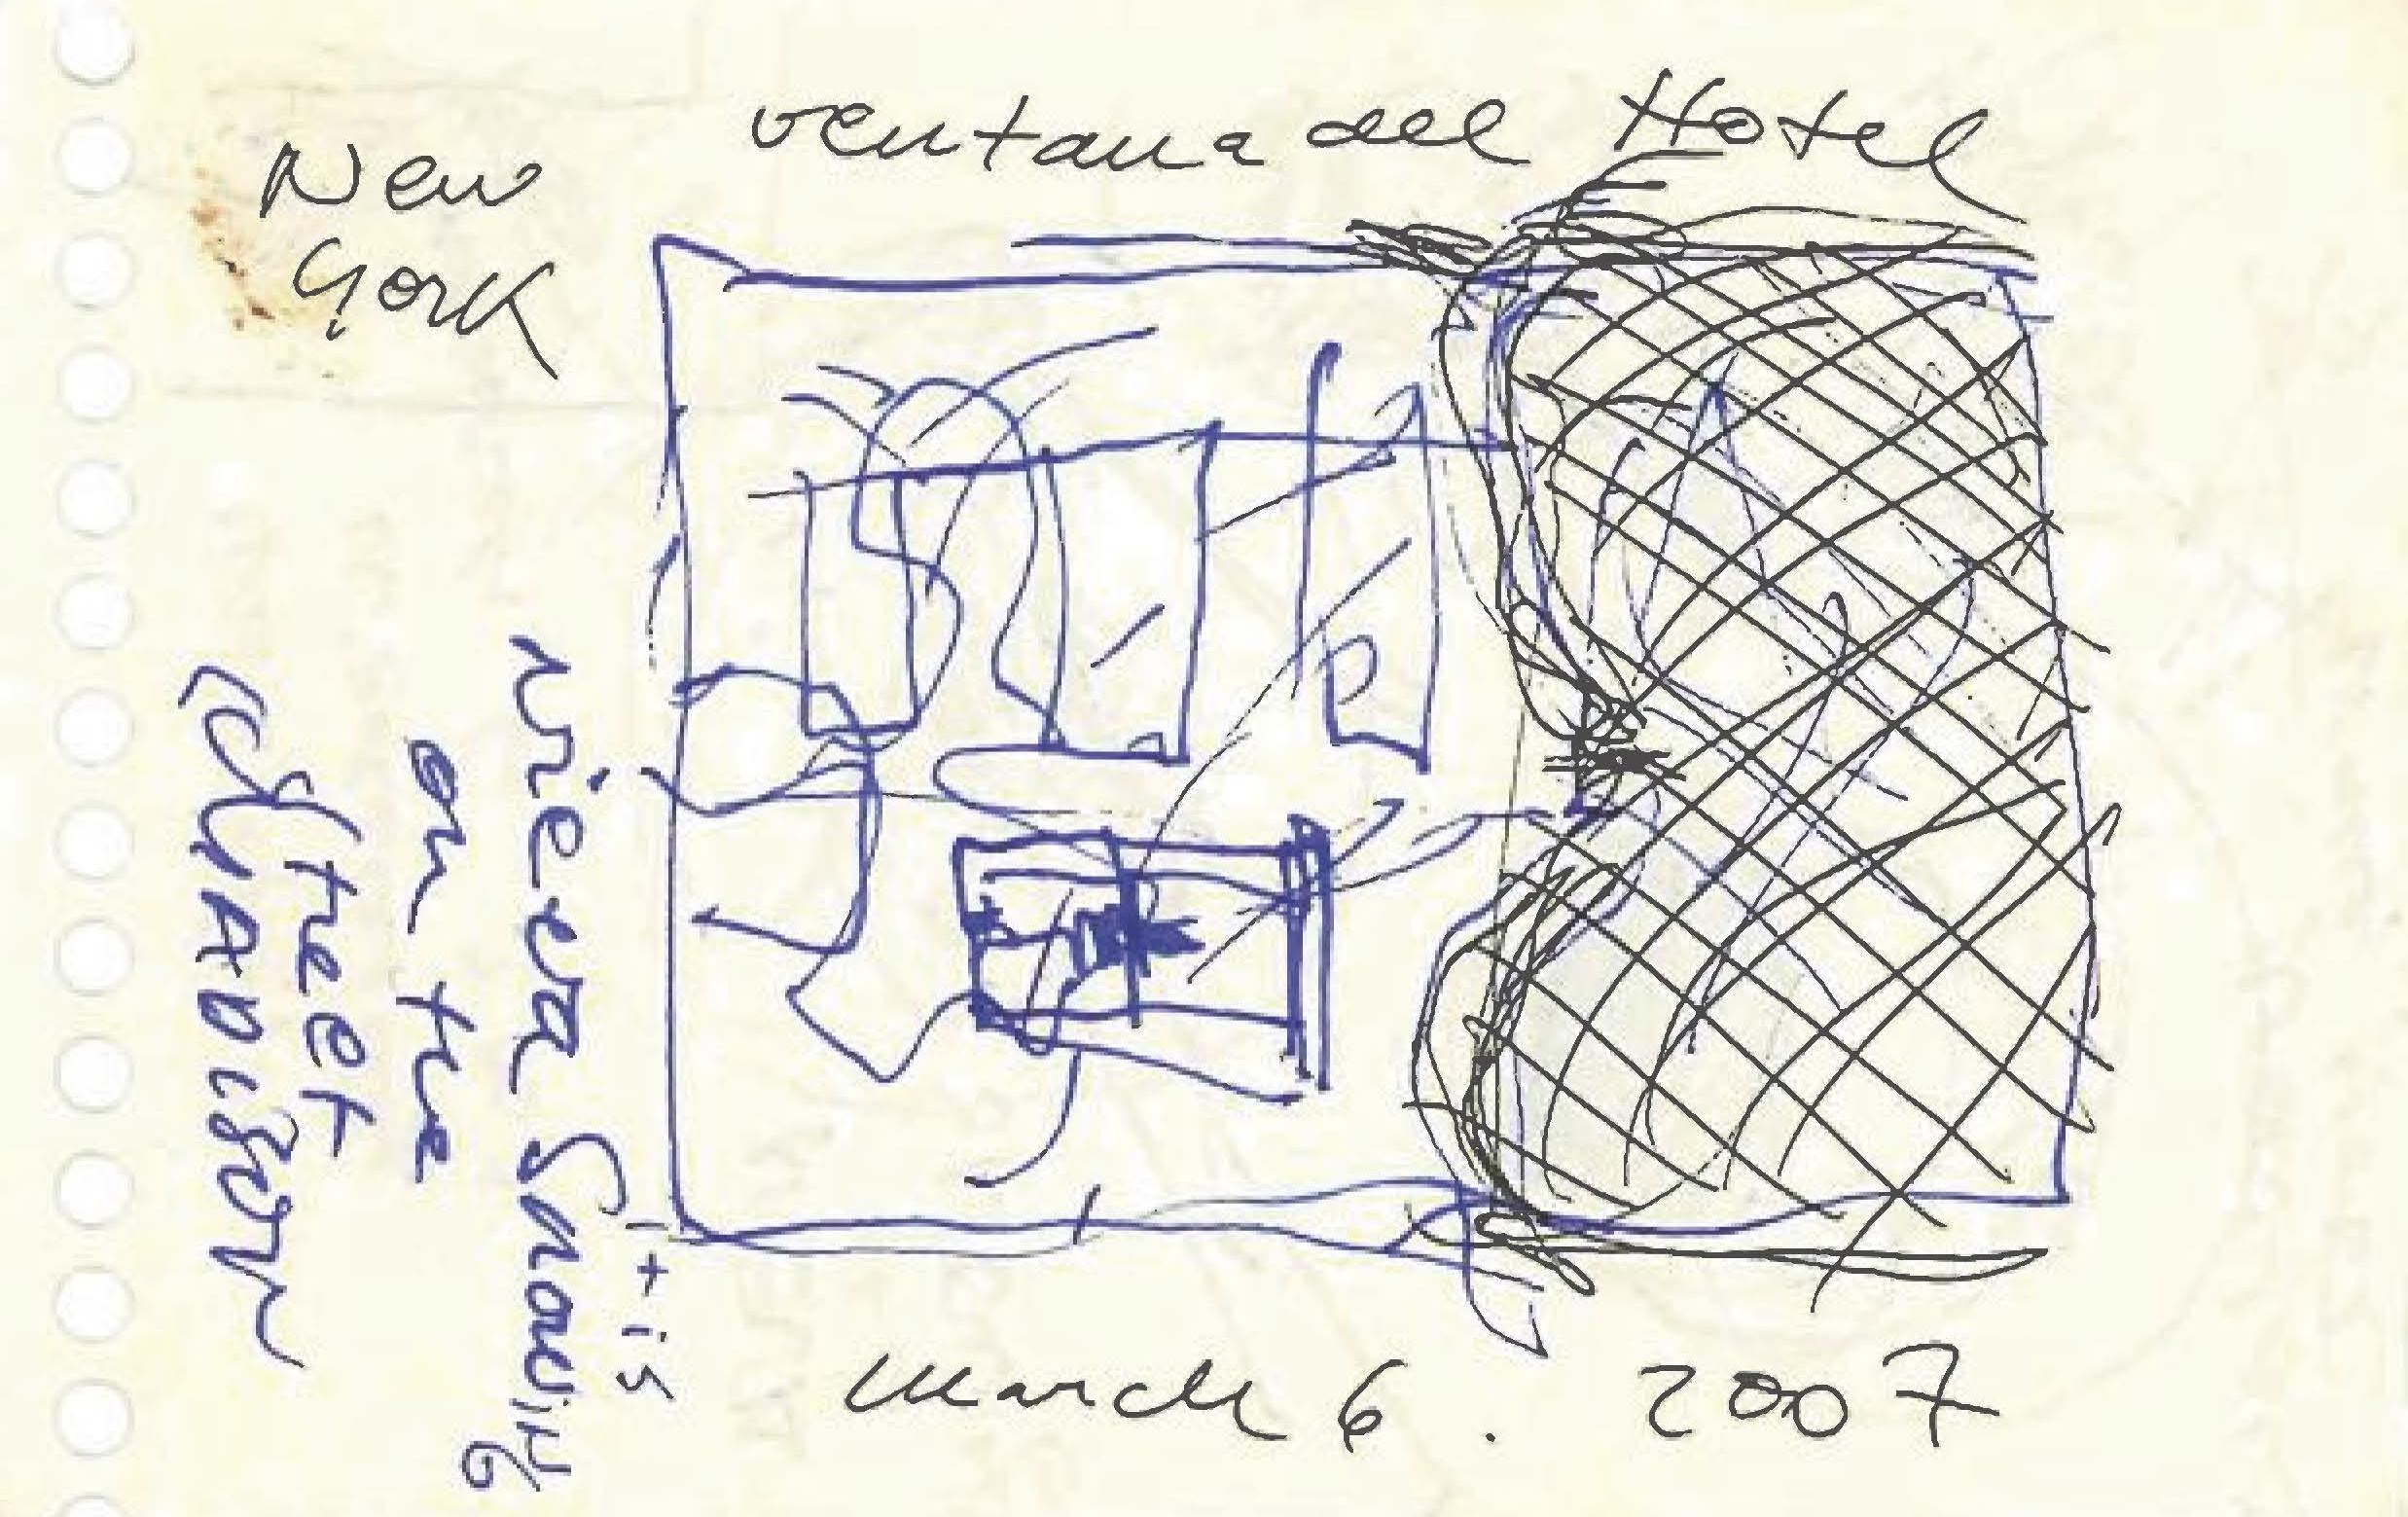 New
York
ventana del Hotel
it is
nieva Snowing
on the
Street
March 6. 2007